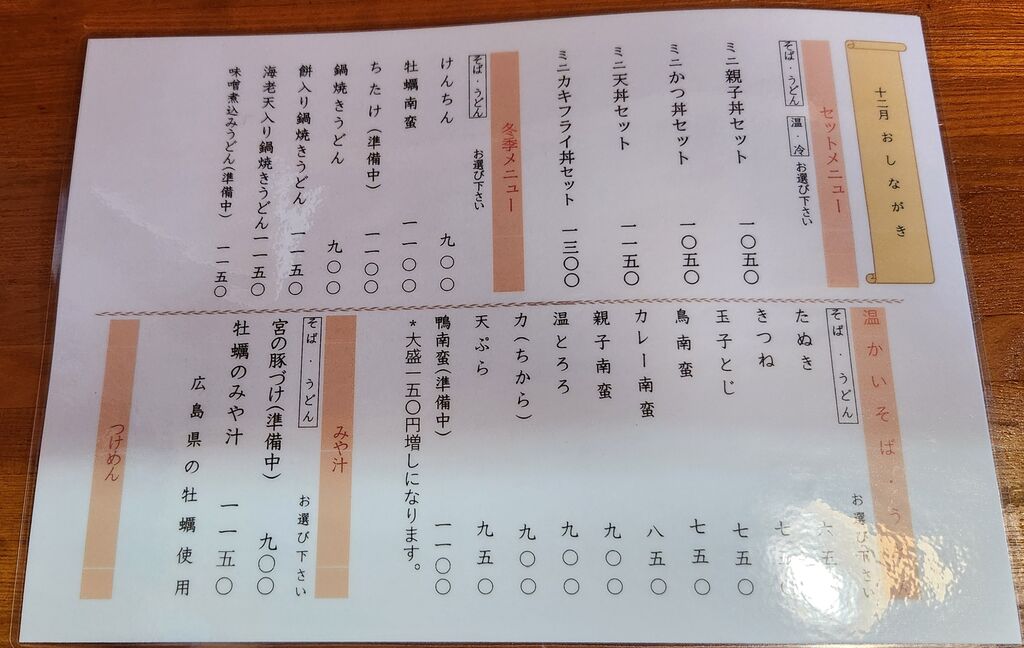 十二月 おしながき
セットメニュー
そば・うどん 温・冷 お選び下さい
ミニ親子丼セット 一〇五〇
ミニかつ丼セット 一〇五〇
ミニ天丼セット 一一五〇
ミニカキフライ丼セット 一三〇〇
冬季メニュー
そば・うどん お選び下さい
けんちん 九〇〇
牡蠣南蛮 一一〇〇
ちたけ(準備中) 一一〇〇
鍋焼きうどん 九〇〇
餅入り鍋焼きうどん 一一五〇
海老天入り鍋焼きうどん 一一五〇
味噌煮込みうどん(準備中) 一一五〇
温かいそば・う
そば・うどん お選び下さい
たぬき 六五
きつね 七五
玉子とじ 七五〇
鳥南蛮 七五〇
カレー南蛮 八五〇
親子南蛮 九〇〇
温とろろ 九〇〇
力(ちから) 九〇〇
天ぷら 九五〇
鴨南蛮(準備中) 一一〇〇
*大盛一五〇円増しになります。
みや汁
そば・うどん お選び下さい
宮の豚づけ(準備中) 九〇〇
牡蠣のみや汁 一一五〇
広島県の牡蠣使用
つけめん